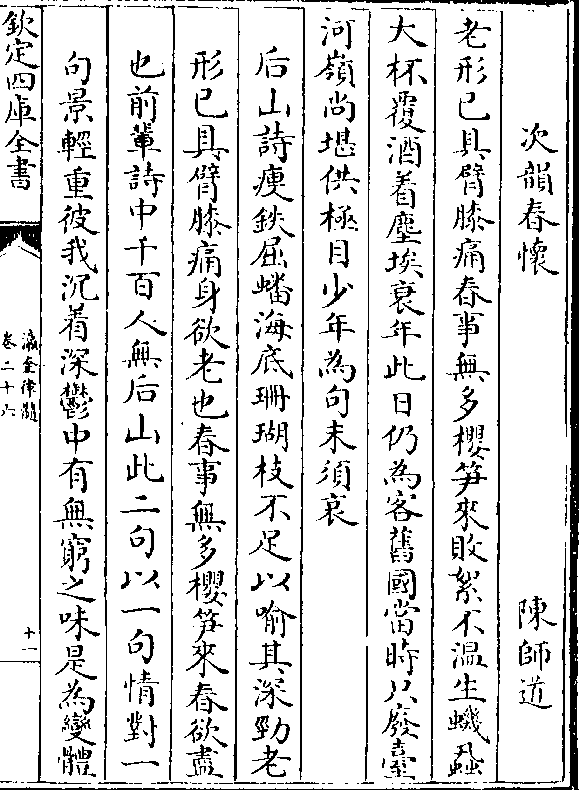 次韻春懷　陳師道
老形已具臂膝痛春事無多櫻笋來敗絮不温生蟣蝨
大杯覆酒着塵埃衰年此日仍為客舊國當時只廢臺
河嶺尚堪供極目少年為句未須哀
后山詩瘦鉄屈蟠海底珊瑚枝不足以喻其深勁老
形已具臂膝痛身欲老也春事無多櫻笋來春欲盡
也前輩詩中千百人無后山此二句以一句情對一
句景輕重彼我沉着深鬱中有無窮之味是為變體
欽定四庫全書
瀛奎律髓
卷二十六
十一